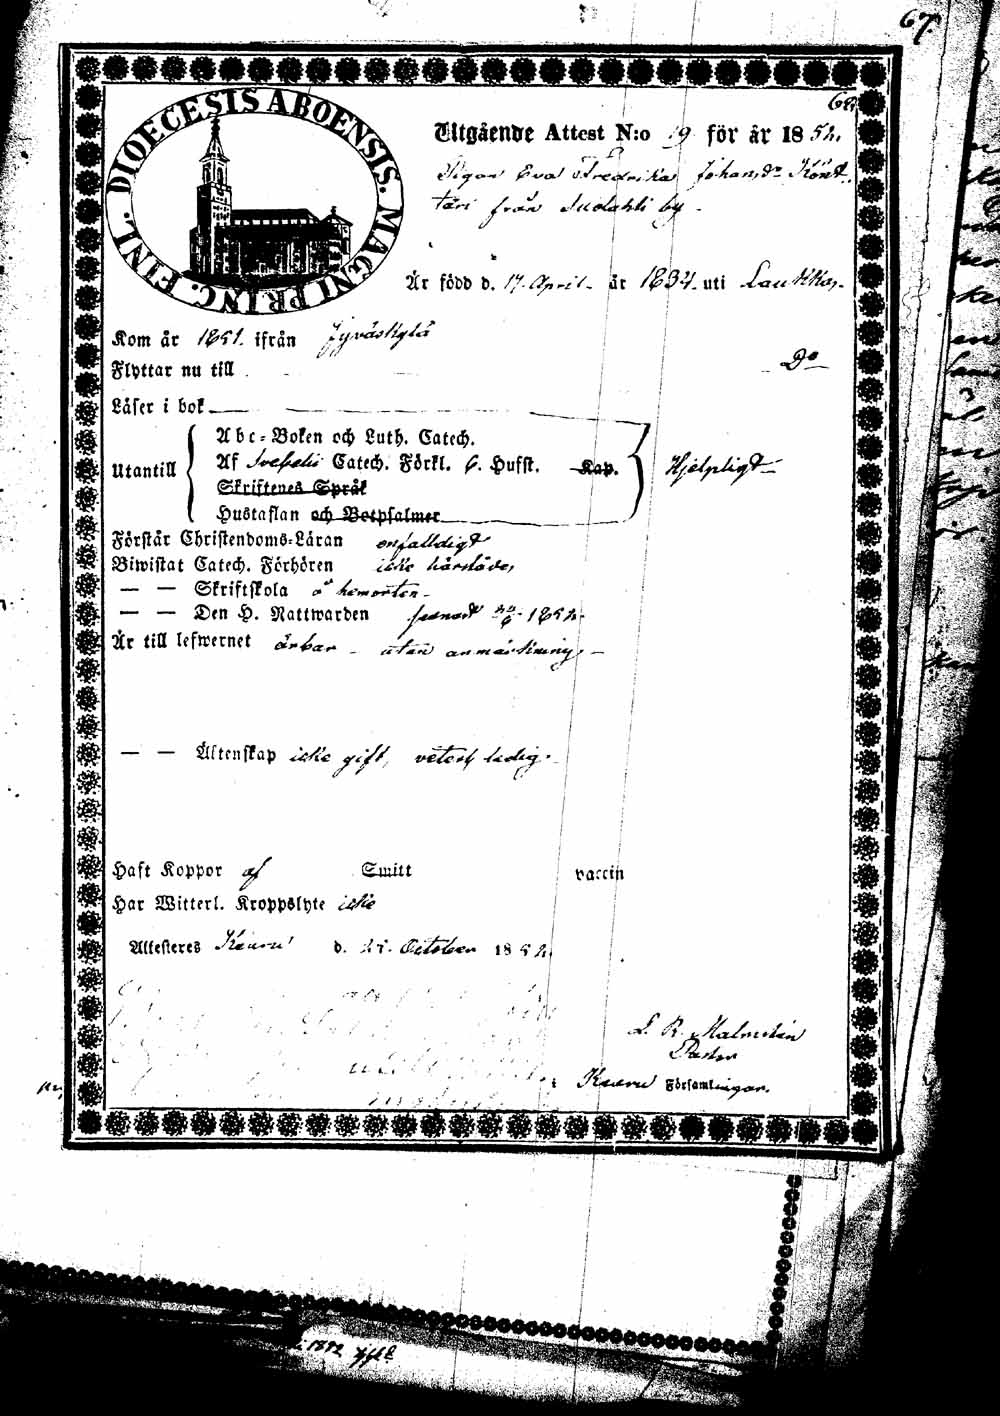 67.
68.
DIOECESIS ABOENSIS. MAGNI PRINC. FINL.
Utgående Attest N:o 19 för år 1852.
Pigan Eva Fredrika Johansdr Kont-
täri från by -
Är född d. 17 April - år 1834 uti Laukka,
Kom år 1851. ifrån Jyväskylä
Flyttar nu till - Do
Läser i bok
Utantill
Abc-Boken och Luth. Catech.
Af Svebelii Catech. Förkl. 6. Hufst. Kap.
Skriftenes Språk
Hustaflan och Botpsalmer
Hjelpligt -
Förstår Christendoms-Läran enfaldigt
Biwistat Catech. Förhören icke härstädes
— — Skriftskola å hemorten -
— — Den H. Nattwarden senast 1852.
Är till lefwernet ärbar - utan anmärkning. -
— — Äktenskap icke gift, veterl. ledig. -
Haft Koppor af Smitt vaccin
Har Witterl. Kroppslyte icke
Attesteres Keuru d. October 1852.
L. R. Malmstén
Pastor
Keuru Församlingar.